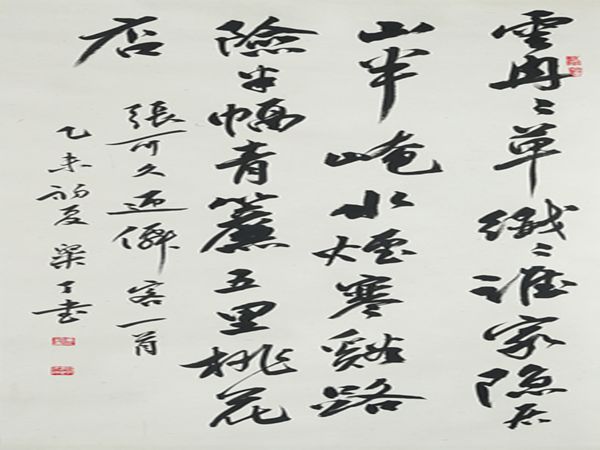 雲冉〻草纖〻誰家隐居
山半崦水煙寒谿路
險半幅青簾五里桃花
店
張可久迎僊客一首
乙未初夏梁丁書